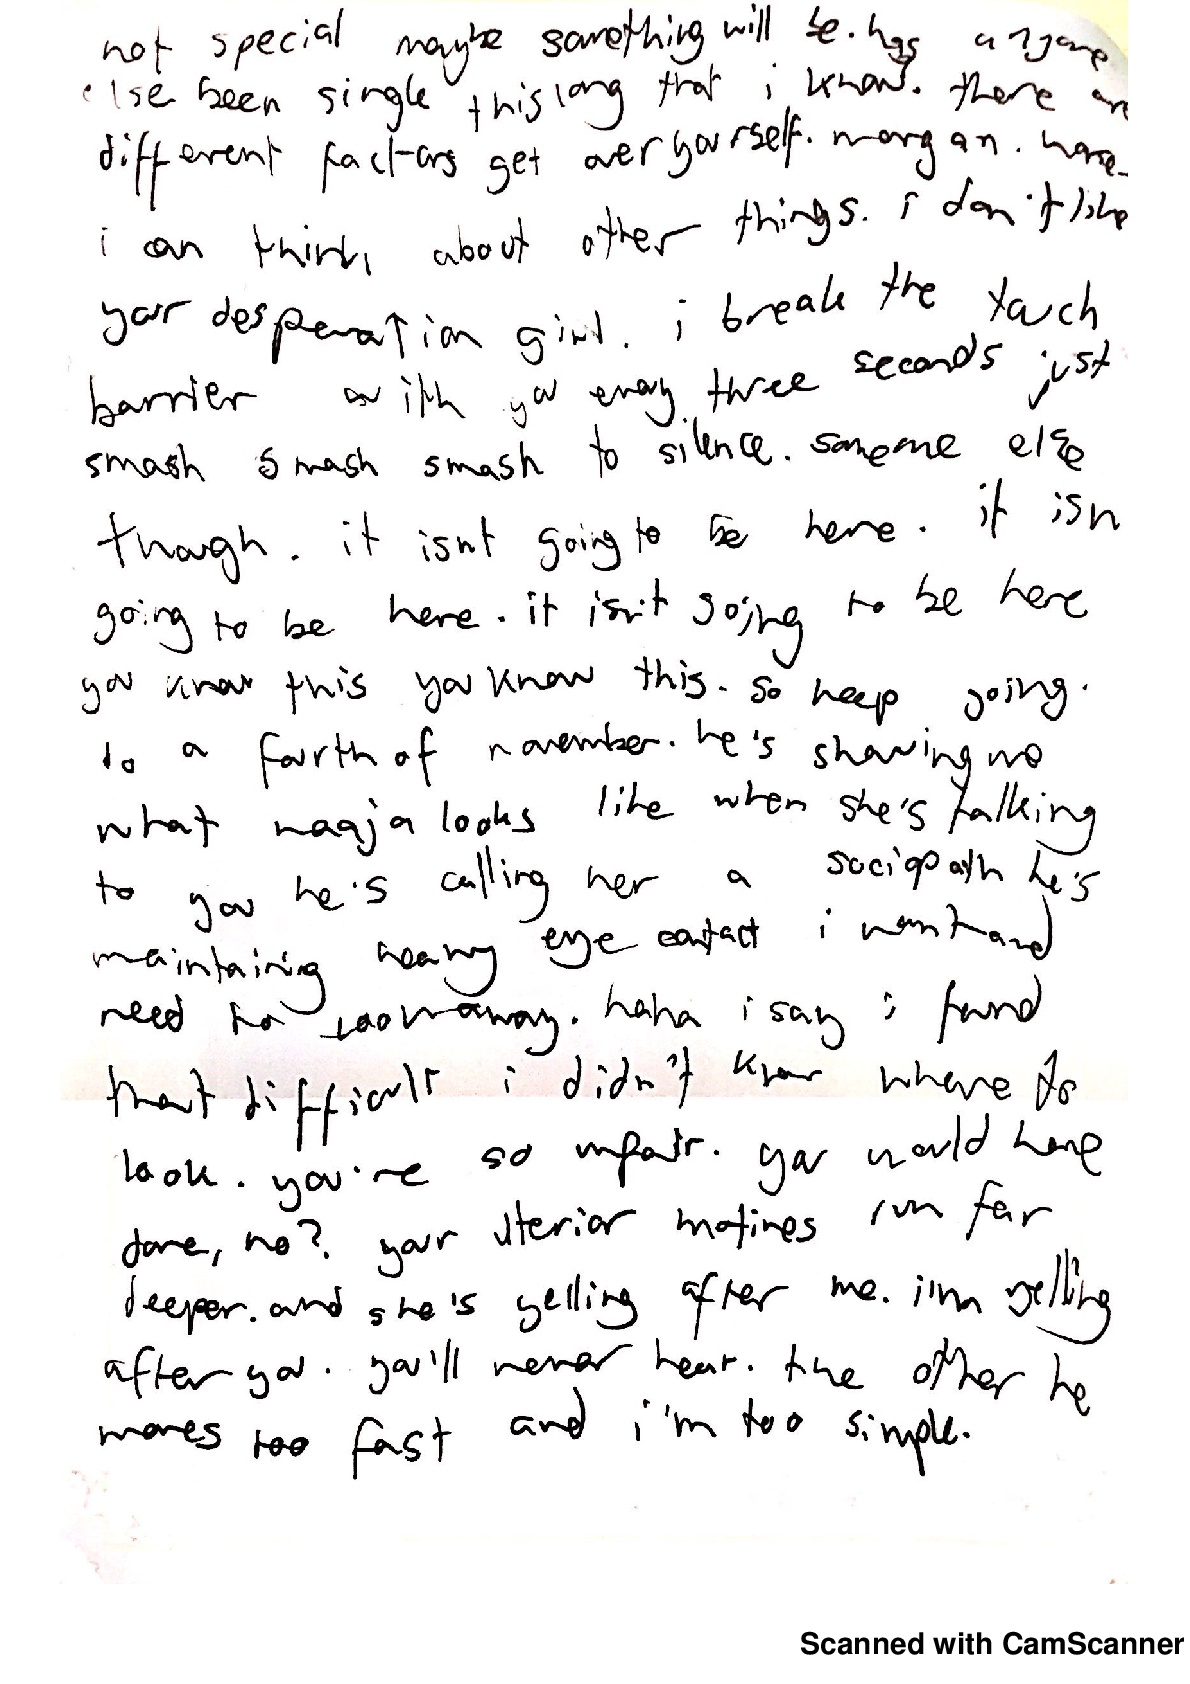 not special maybe something will be. has anyone
else been single this long that i know. there are
different factors get over yourself. morgan.
i can think about other things. i don't like
your desperation girl. i break the touch
barrier with you every three seconds just
smash smash smash to silence. someone else
though. it isnt going to be here. it isn
going to be here. it isn't going to be here
you know this you know this. so keep going.
to a fourth of november. he's showing me
what naaja looks like when she's talking
to you he's calling her a sociopath he's
maintaining heavy eye contact i want and
need to look away. haha i say i found
that difficult i didn't know where to
look. you're so unfair. you would have
done, no? your ulterior motives run far
deeper. and she's yelling after me. i'm yelling
after you. you'll never hear. the other he
moves too fast and i'm too simple.
Scanned with CamScanner